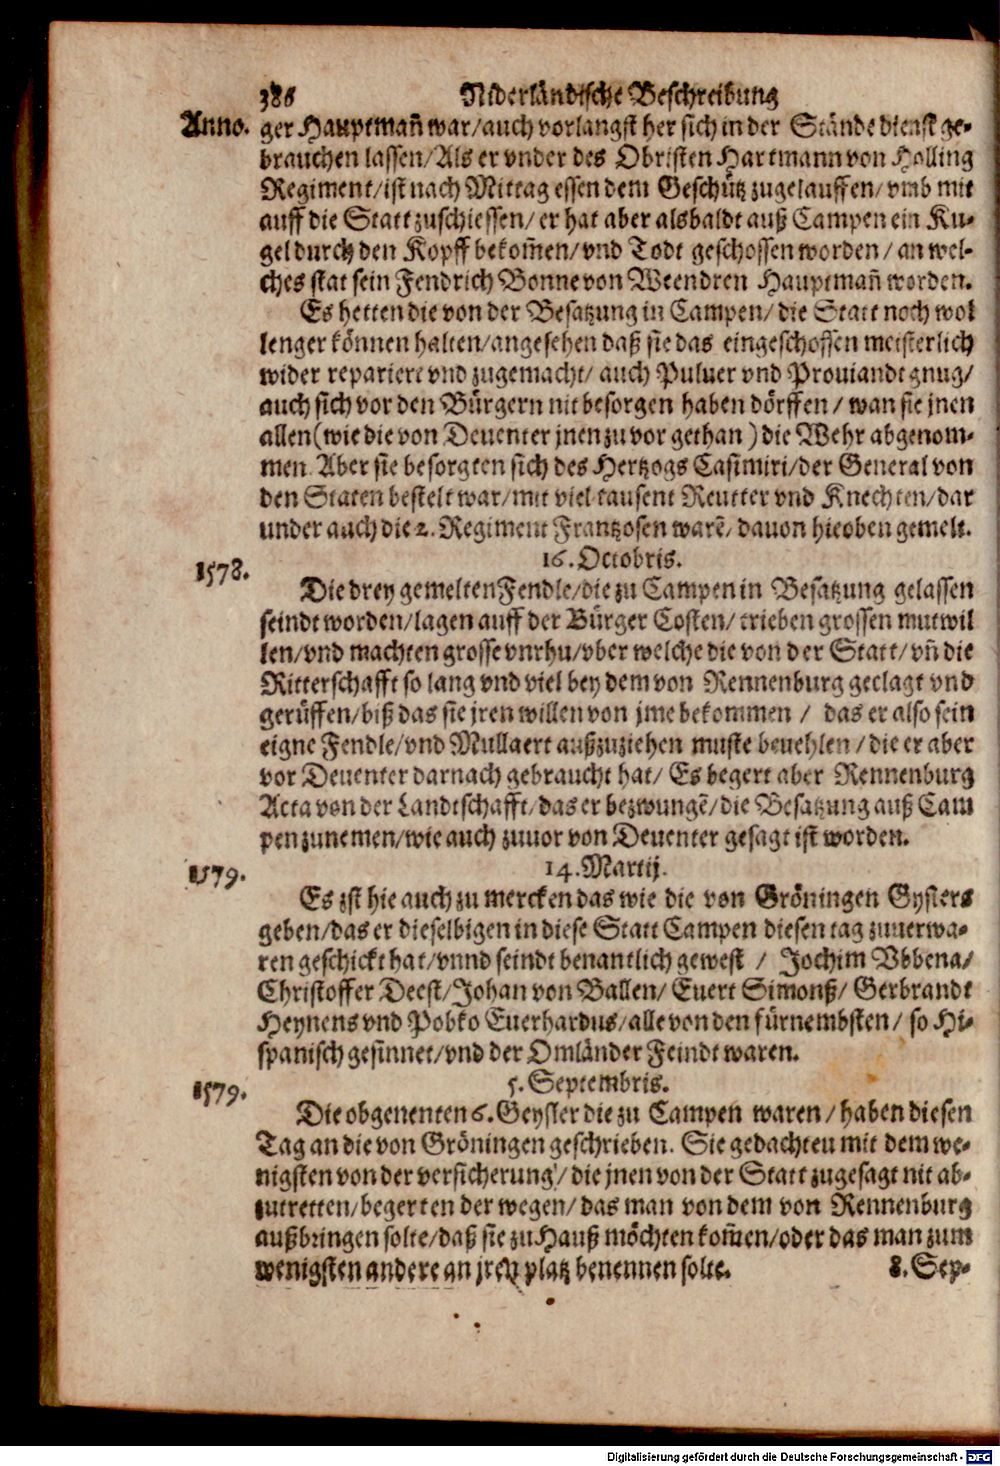 386 Niderländische Beschreibung
Anno. ger Hauptmañ war/auch vorlangst her sich in der Stände dienst ge-
brauchen lassen/Als er vnder des Obristen Hartmann von Holling
Regiment/ist nach Mittag essen dem Geschütz zugelauffen/vmb mit
auff die Statt zuschiessen/er hat aber alsbaldt auß Campen ein Ku-
gel durch den Kopff bekom̃en/vnd Todt geschossen worden/an wel-
ches stat sein Fendrich Bonne von Weendren Hauptmañ worden.
Es hetten die von der Besatzung in Campen/die Statt noch wol
lenger können halten/angesehen daß sie das eingeschossen meisterlich
wider repariert vnd zugemacht/auch Puluer vnd Prouiandt gnug/
auch sich vor den Bürgern nit besorgen haben dörffen/wan sie jnen
allen(wie die von Deuenter jnen zuvor gethan)die Wehr abgenom-
men. Aber sie besorgten sich des Hertzogs Casimiri/der General von
den Staten bestelt war/mit viel tausent Reutter vnd Knechten/dar
under auch die 2. Regiment Frantzosen warẽ/dauon hieoben gemelt.
16. Octobris.
1578. Die drey gemelten Fendle/die zu Campen in Besatzung gelassen
seindt worden/lagen auff der Bürger Costen/trieben grossen mutwil
len/vnd machten grosse vnrhu/vber welche die von der Statt/vñ die
Ritterschafft so lang vnd viel bey dem von Rennenburg geclagt vnd
gerüffen/biß das sie jren willen von jme bekommen / das er also sein
eigne Fendle/vnd Mullaert außzuziehen muste beuehlen/die er aber
vor Deuenter darnach gebraucht hat/Es begert aber Rennenburg
Acta von der Landtschafft/das er bezwungẽ/die Besatzung auß Cam
pen zunemen/wie auch zuuor von Deuenter gesagt ist worden.
14. Martij.
1579. Es zst hie auch zu mercken das wie die von Gröningen Gysters
geben/das er dieselbigen in diese Statt Campen diesen tag zuuerwa-
ren geschickt hat/vnnd seindt benantlich gewest / Jochim Vbbena/
Christoffer Deest/Johan von Ballen/Euert Simonß/Gerbrandt
Heynens vnd Pobko Euerhardus/alle von den fürnembsten/so Hi-
spanisch gesinnet/vnd der Omländer Feindt waren.
5. Septembris.
1579. Die obgenenten 6. Geysler die zu Campen waren/haben diesen
Tag an die von Gröningen geschrieben. Sie gedachten mit dem we-
nigsten von der versicherung/die jnen von der Statt zugesagt nit ab-
zutretten/begerten der wegen/das man von dem von Rennenburg
außbringen solte/daß sie zu Hauß möchten kom̃en/oder das man zum
wenigsten andere an jren platz benennen solte. 8. Sep-
Digitalisierung gefördert durch die Deutsche Forschungsgemeinschaft - DFG